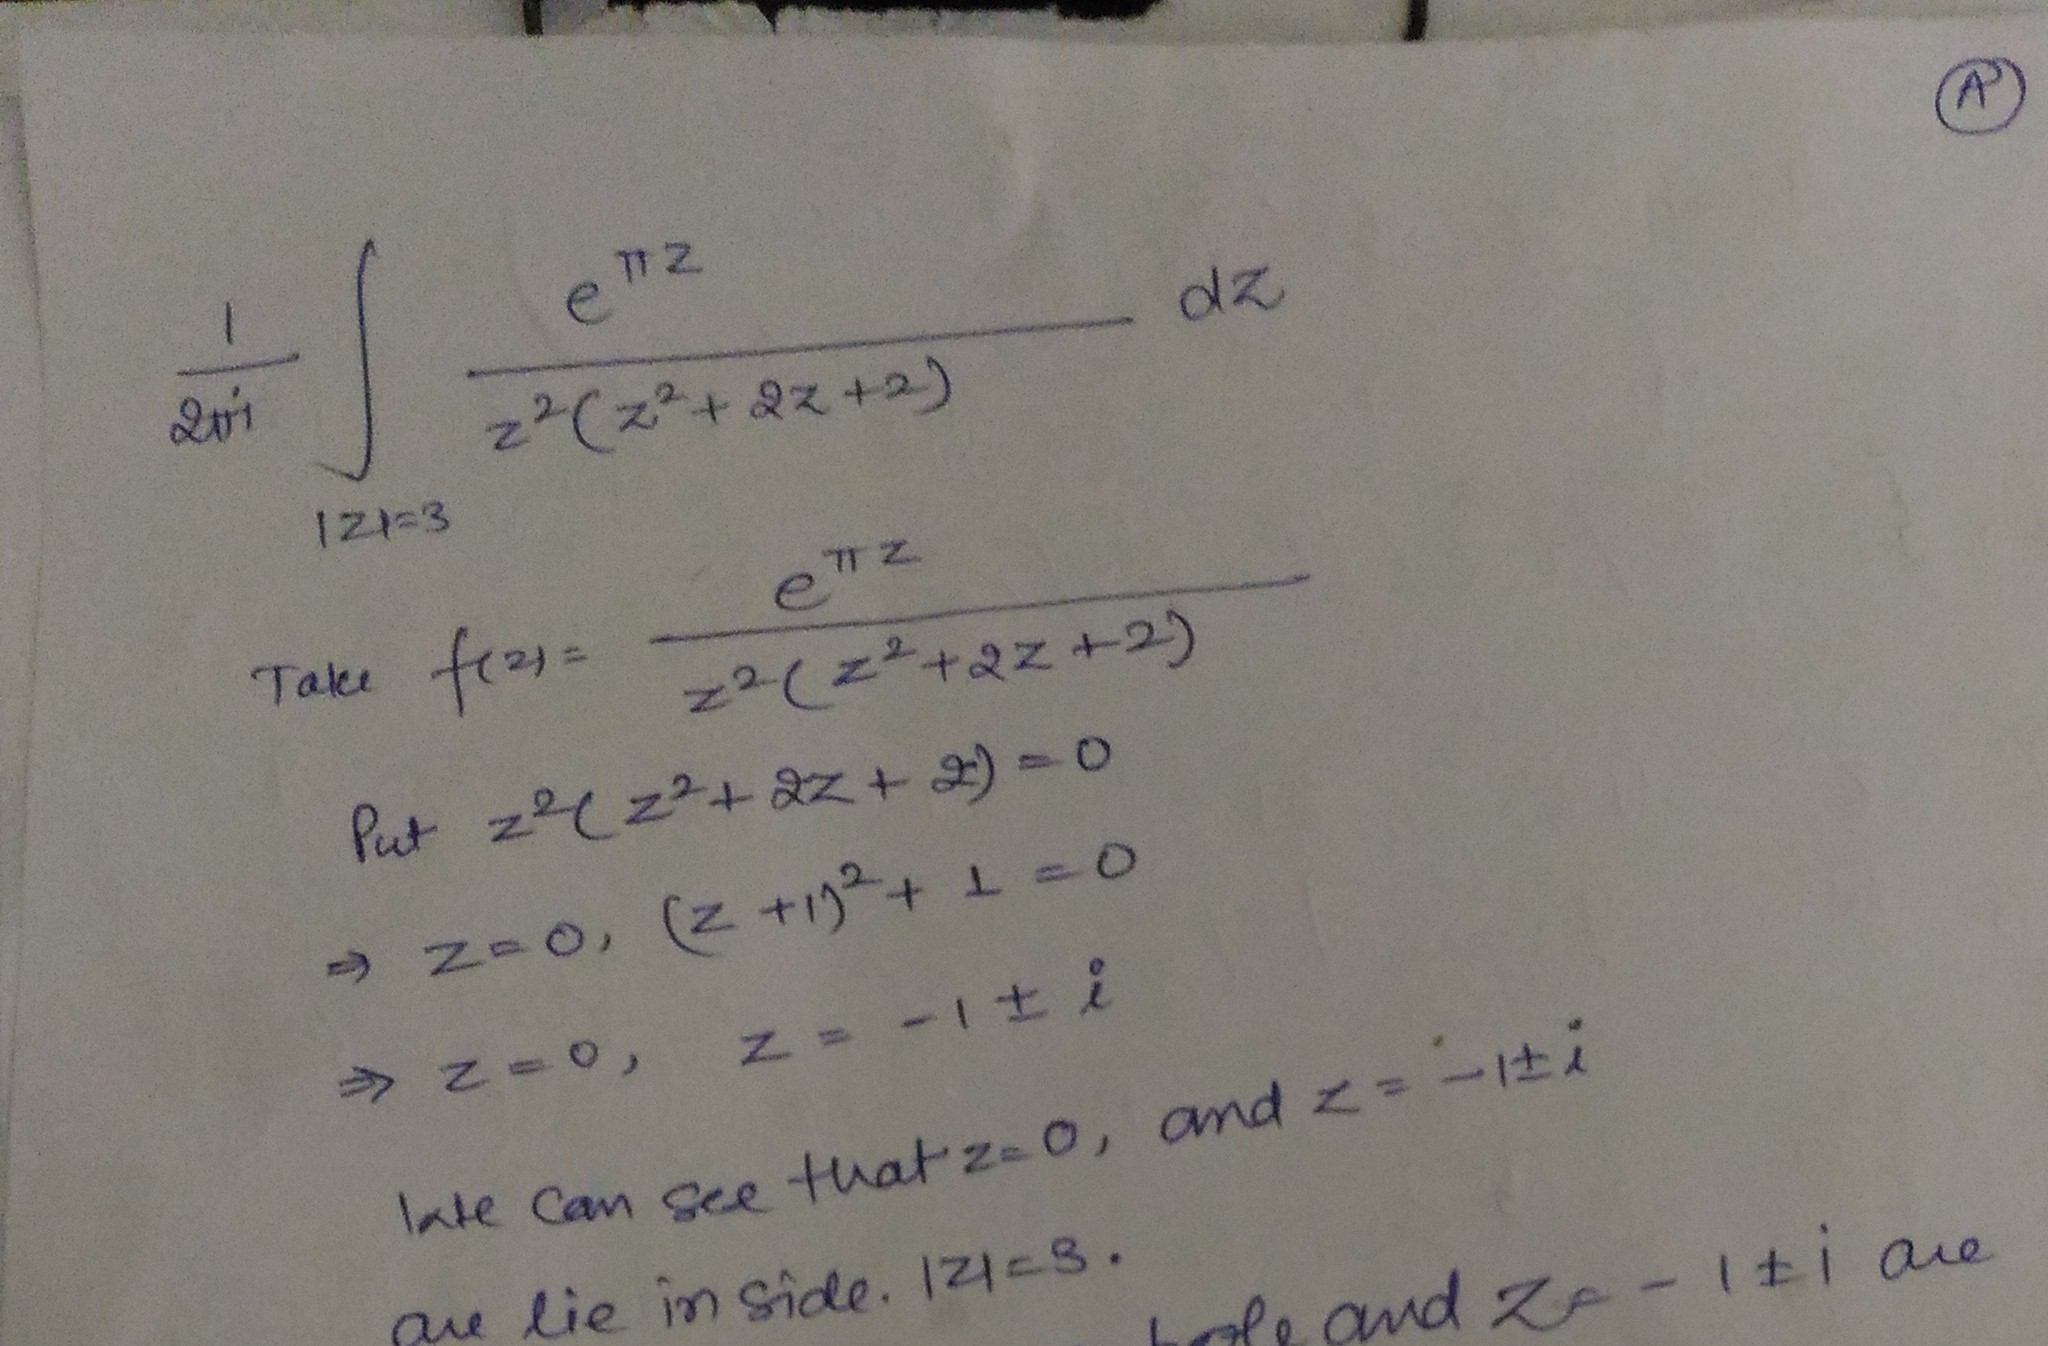 A
1/2πi ∫ |z|=3 e^πz / z²(z²+2z+2) dz
Take f(z) = e^πz / z²(z²+2z+2)
Put z²(z²+2z+2) = 0
⇒ z=0, (z+1)²+1=0
⇒ z=0, z = -1±i
We can see that z=0, and z = -1±i
are lie in side. |z|=3.
and z = -1±i are